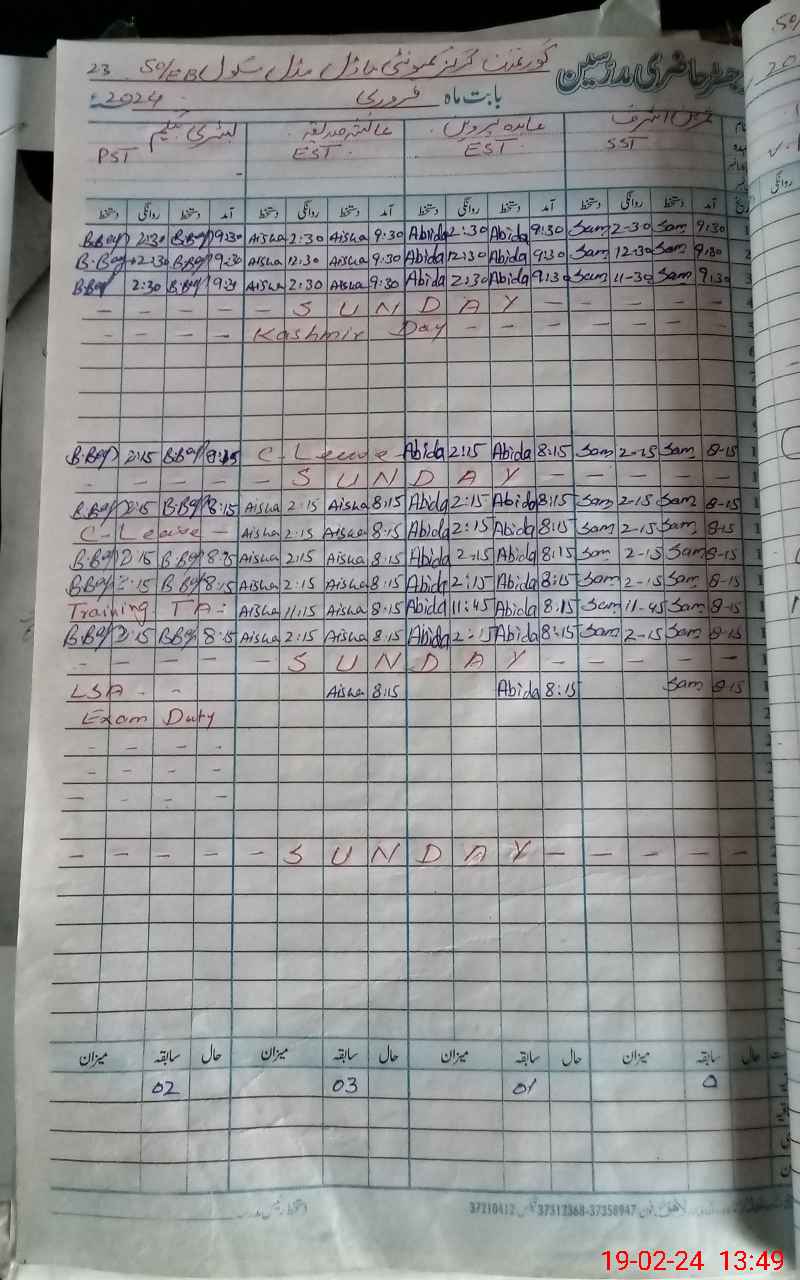 رجسٹر حاضری مدرسین گورنمنٹ گرلز کمیونٹی ماڈل مڈل سکول 50/EB 23
بابت ماہ فروری 2024ء
اشرف عابدہ پروین عائشہ صدیقہ بیگم
SST EST EST PST
آمد دستخط روانگی دستخط آمد دستخط روانگی دستخط آمد دستخط روانگی دستخط آمد دستخط روانگی دستخط
B.Beg 2:30 B.Beg 9:30 Aisha 2:30 Aisha 9:30 Abida 2:30 Abida 9:30 Sam 2-30 Sam 9:30
B.Beg 2:30 B.Beg 9:30 Aisha 12:30 Aisha 9:30 Abida 12:30 Abida 9:30 Sam 12-30 Sam 9:30
B.Beg 2:30 B.Beg 9:3 Aisha 2:30 Aisha 9:30 Abida 2:30 Abida 9:30 Sam 11-30 Sam 9:30
- - - - - S U N D A Y - - - - -
- - - - Kashmir Day - - - - - - -
B.Beg 2:15 B.Beg 8:15 C-Leave - Abida 2:15 Abida 8:15 Sam 2-15 Sam 8-15
- - - - - S U N D A Y - - - - -
B.Beg 2:15 B.Beg 8:15 Aisha 2:15 Aisha 8:15 Abida 2:15 Abida 8:15 Sam 2-15 Sam 8-15
C-Leave - Aisha 2:15 Aisha 8:15 Abida 2:15 Abida 8:15 Sam 2-15 Sam 8-15
B.Beg 2:15 B.Beg 8:15 Aisha 2:15 Aisha 8:15 Abida 2:15 Abida 8:15 Sam 2-15 Sam 8-15
B.Beg 2:15 B.Beg 8:15 Aisha 2:15 Aisha 8:15 Abida 2:15 Abida 8:15 Sam 2-15 Sam 8-15
Training TA:- Aisha 11:15 Aisha 8:15 Abida 11:45 Abida 8:15 Sam 11-45 Sam 8-15
B.Beg 2:15 B.Beg 8:15 Aisha 2:15 Aisha 8:15 Abida 2:15 Abida 8:15 Sam 2-15 Sam 8-15
- - - - - S U N D A Y - - - - -
LSA - - Aisha 8:15 Abida 8:15 Sam 8-15
Exam Duty
- - - -
- - - -
- - - -
- - - - - S U N D A Y - - - - - -
حال سابقہ میزان حال سابقہ میزان حال سابقہ میزان حال سابقہ میزان
02 03 01 0
37210412 37312368-37358947
19-02-24 13:49